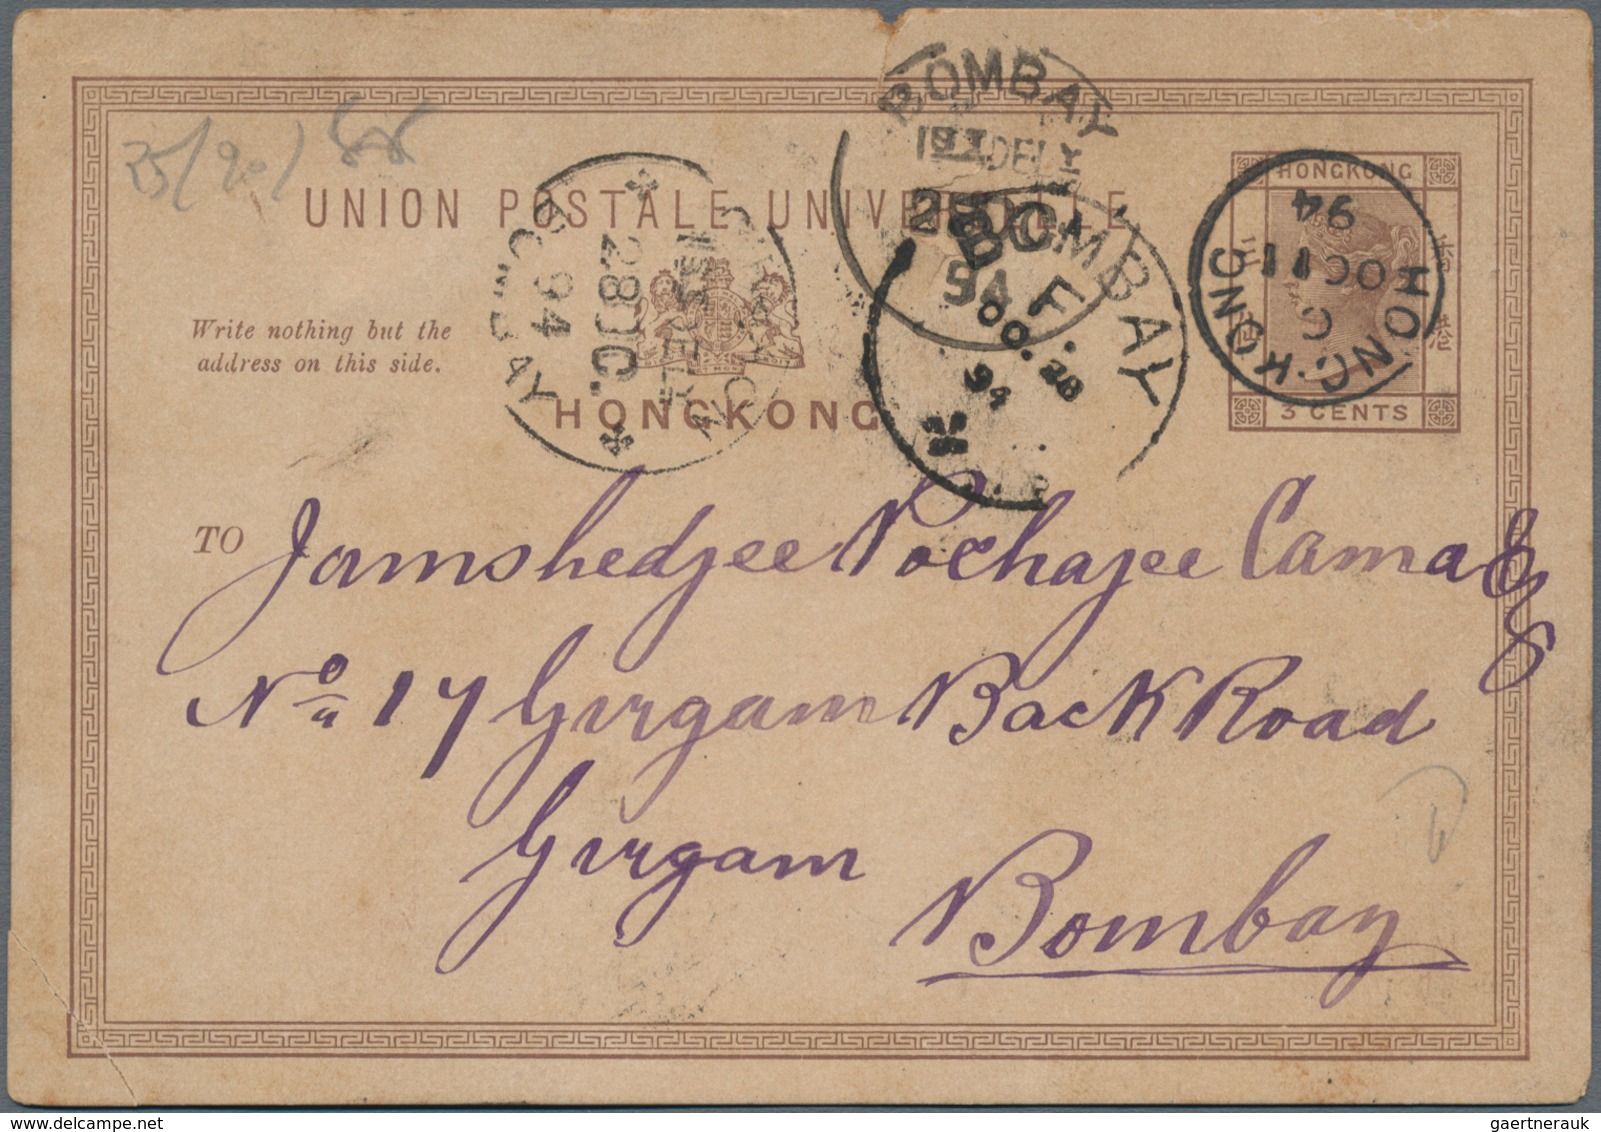 UNION POSTALE UNIVERSELLE
HONGKONG
Write nothing but the
address on this side.
HONGKONG
3 CENTS
香港
HONG·KONG
C
OC 11
94
BOMBAY
1ST DELY
28 OC
94
BOMBAY
F.
OC. 28
94
BOMBAY
28 OC.
94
TO Jamshedjee Pochajee Cama &
Co
No 17 Girgam Back Road
Girgam
Bombay
gaertnerauk